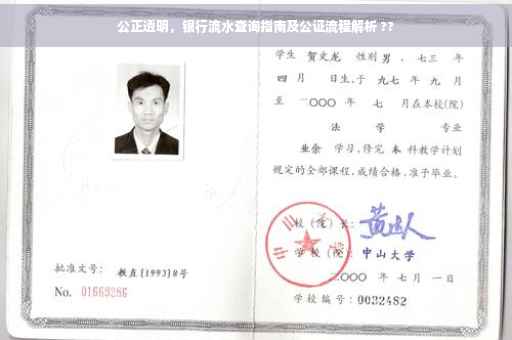 公正透明，银行流水查询指南及公证流程解析 ??
学生 贺文龙 性别 男，七三 年
四 月 日生，于 九七 年 九 月
至 二〇〇〇 年 七 月在本校(院)
法 学 专业
业余 学习，修完 本 科教学计划
规定的全部课程，成绩合格，准予毕业。
校 (院) 长：
学 校 (院)：中山大学
二〇〇〇 年 七 月 一 日
学校编号：0032482
批准文号：教直[1993]8号
No. 01669286